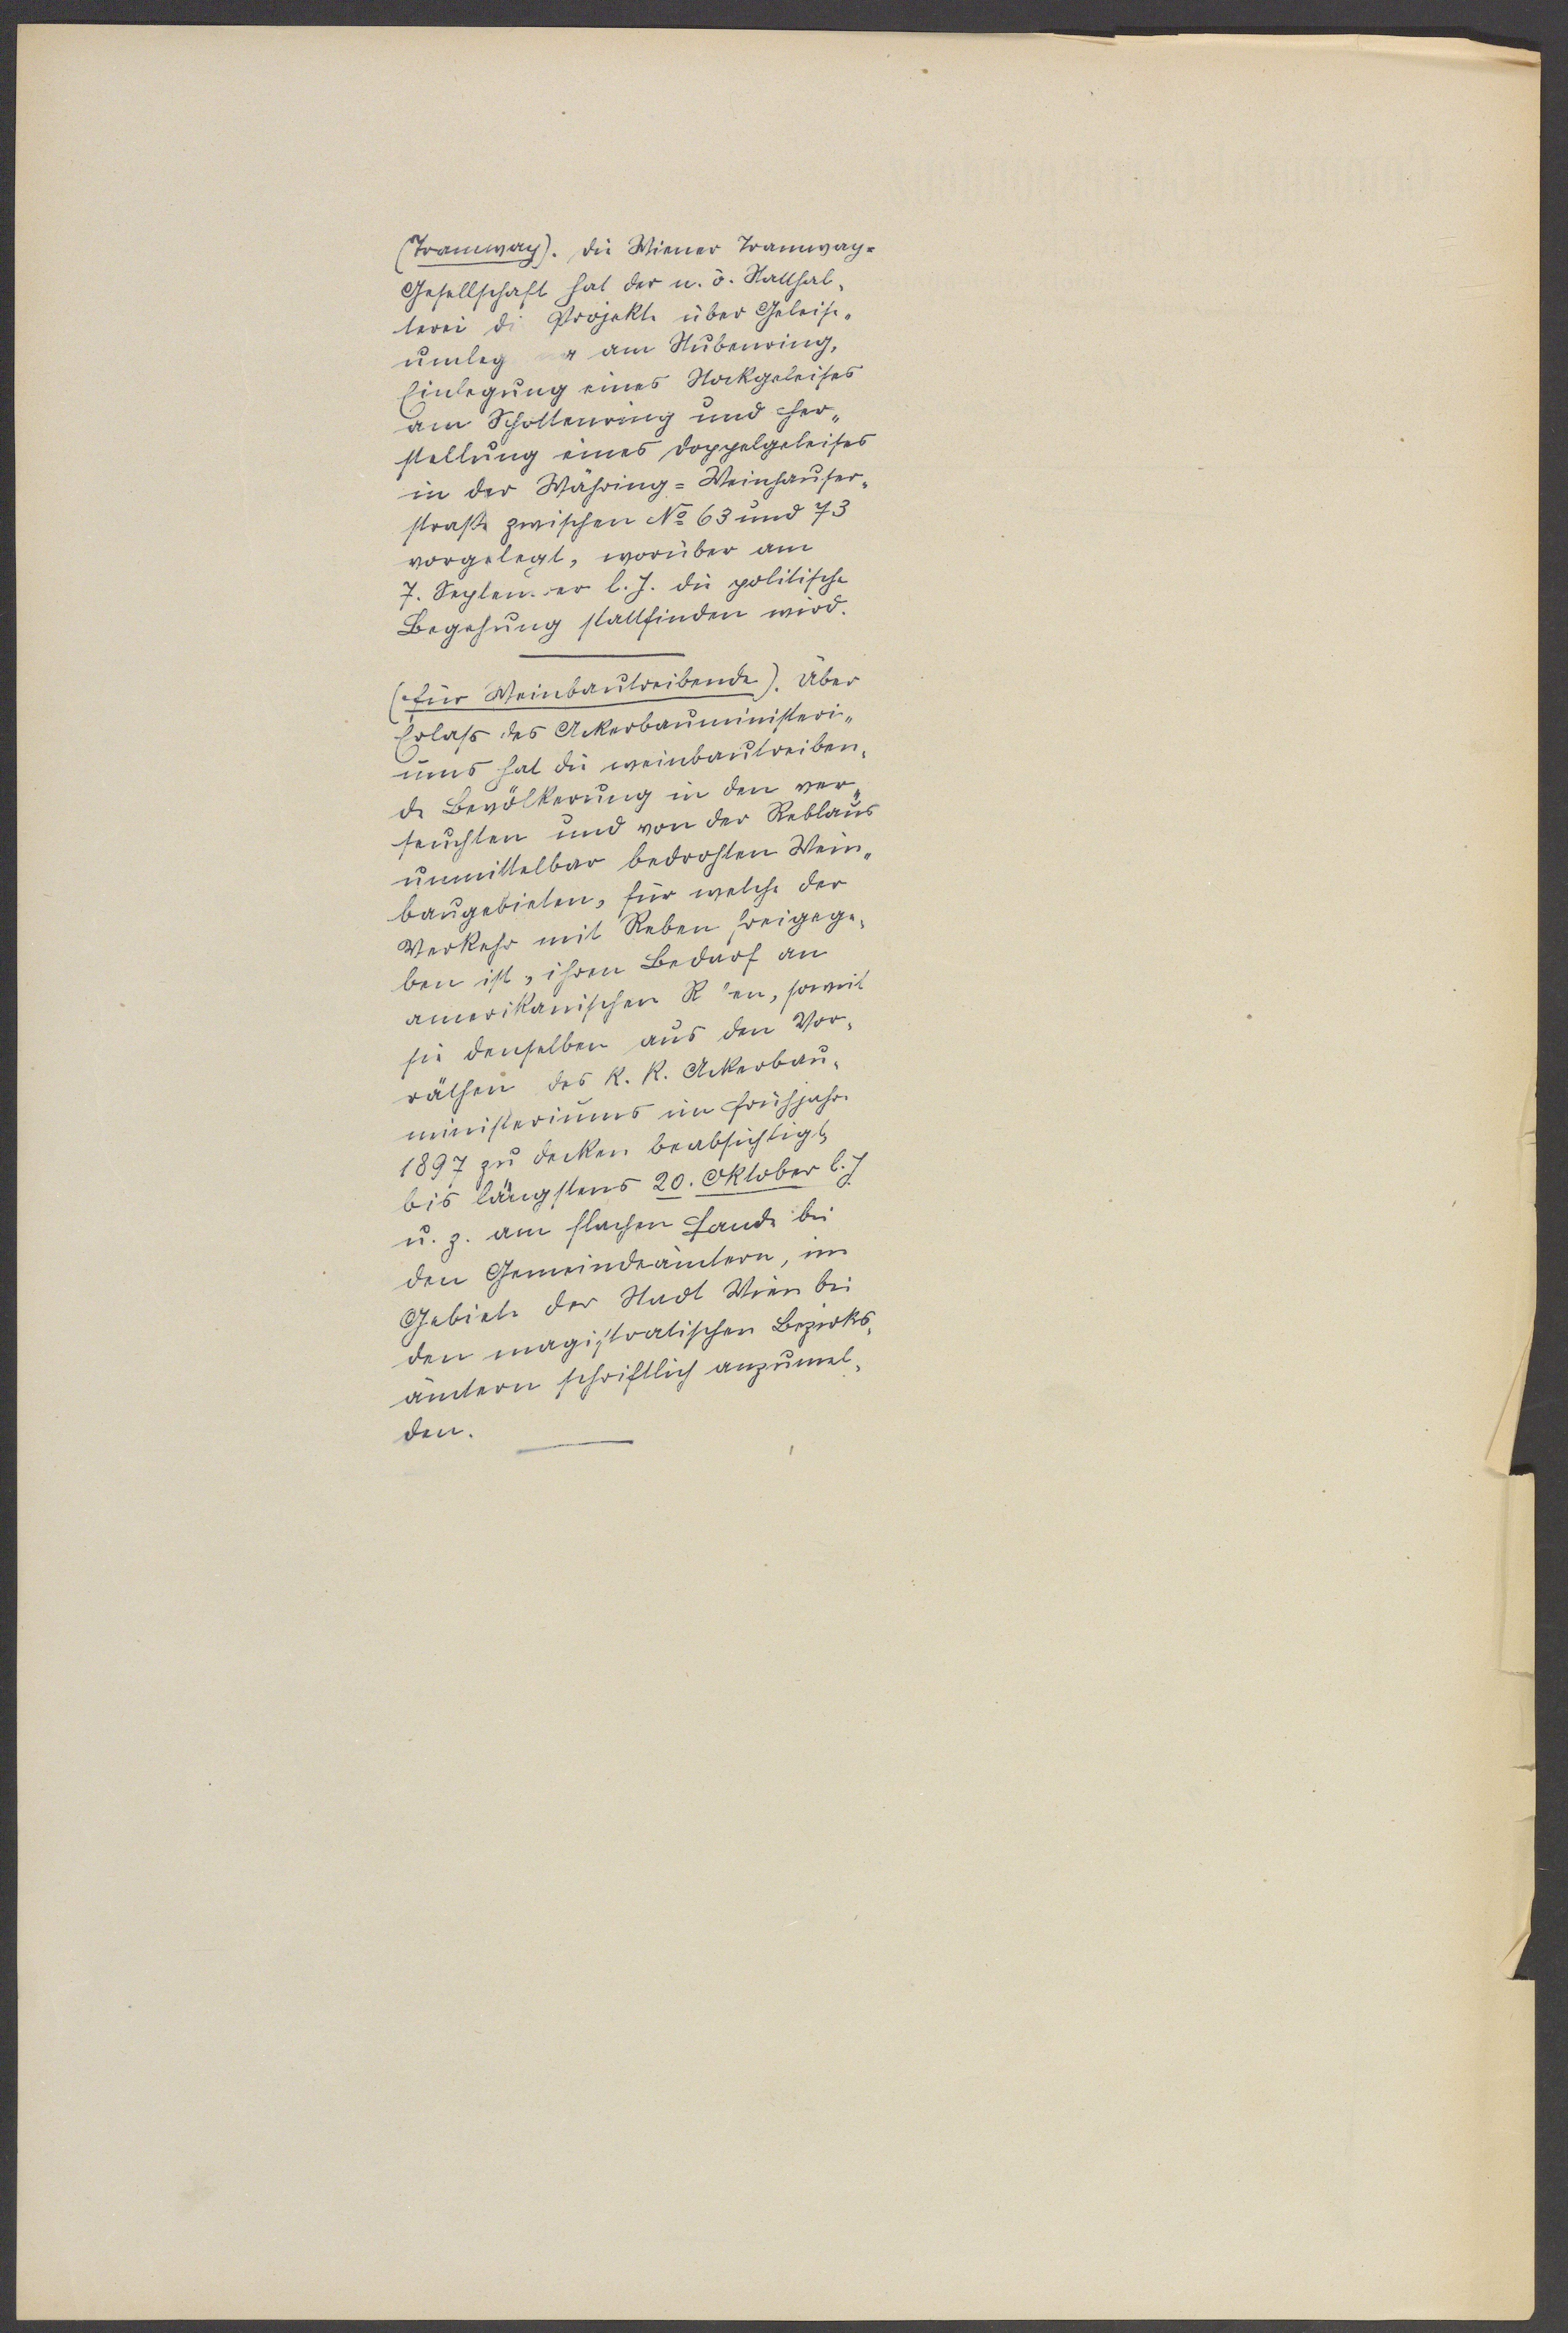 (Tramway). Die Wiener Tramway=
Gesellschaft hat der n. ö. Statthal-
terei di Projekte über Geleise-
umleg am Stubenring,
Einlegung eines Stockgeleises
am Schottenring und Her-
stellung eines Doppelgeleises
in der Währing=Weinhauser-
straße zwischen No 63 und 73
vorgelegt, worüber am
7. September l. J. die politische
Begehung stattfinden wird.
(Für Weinbautreibende). Über
Erlaß des Ackerbauministeri-
ums hat die weinbautreiben-
de Bevölkerung in den ver-
seuchten und von der Reblaus
unmittelbar bedrohten Wein-
baugebieten, für welche der
Verkehr mit Reben freigege-
ben ist, ihren Bedarf an
amerikanischen R en, soweit
sie denselben aus den Vor-
räthen des k. k. Ackerbau-
ministeriums im Frühjahre
1897 zu decken beabsichtigt,
bis längstens 20. Oktober l. J.
u. z. am flachen Lande bei
den Gemeindeämtern, im
Gebiete der Stadt Wien bei
den magistratischen Bezirks-
ämtern schriftlich anzumel-
den.